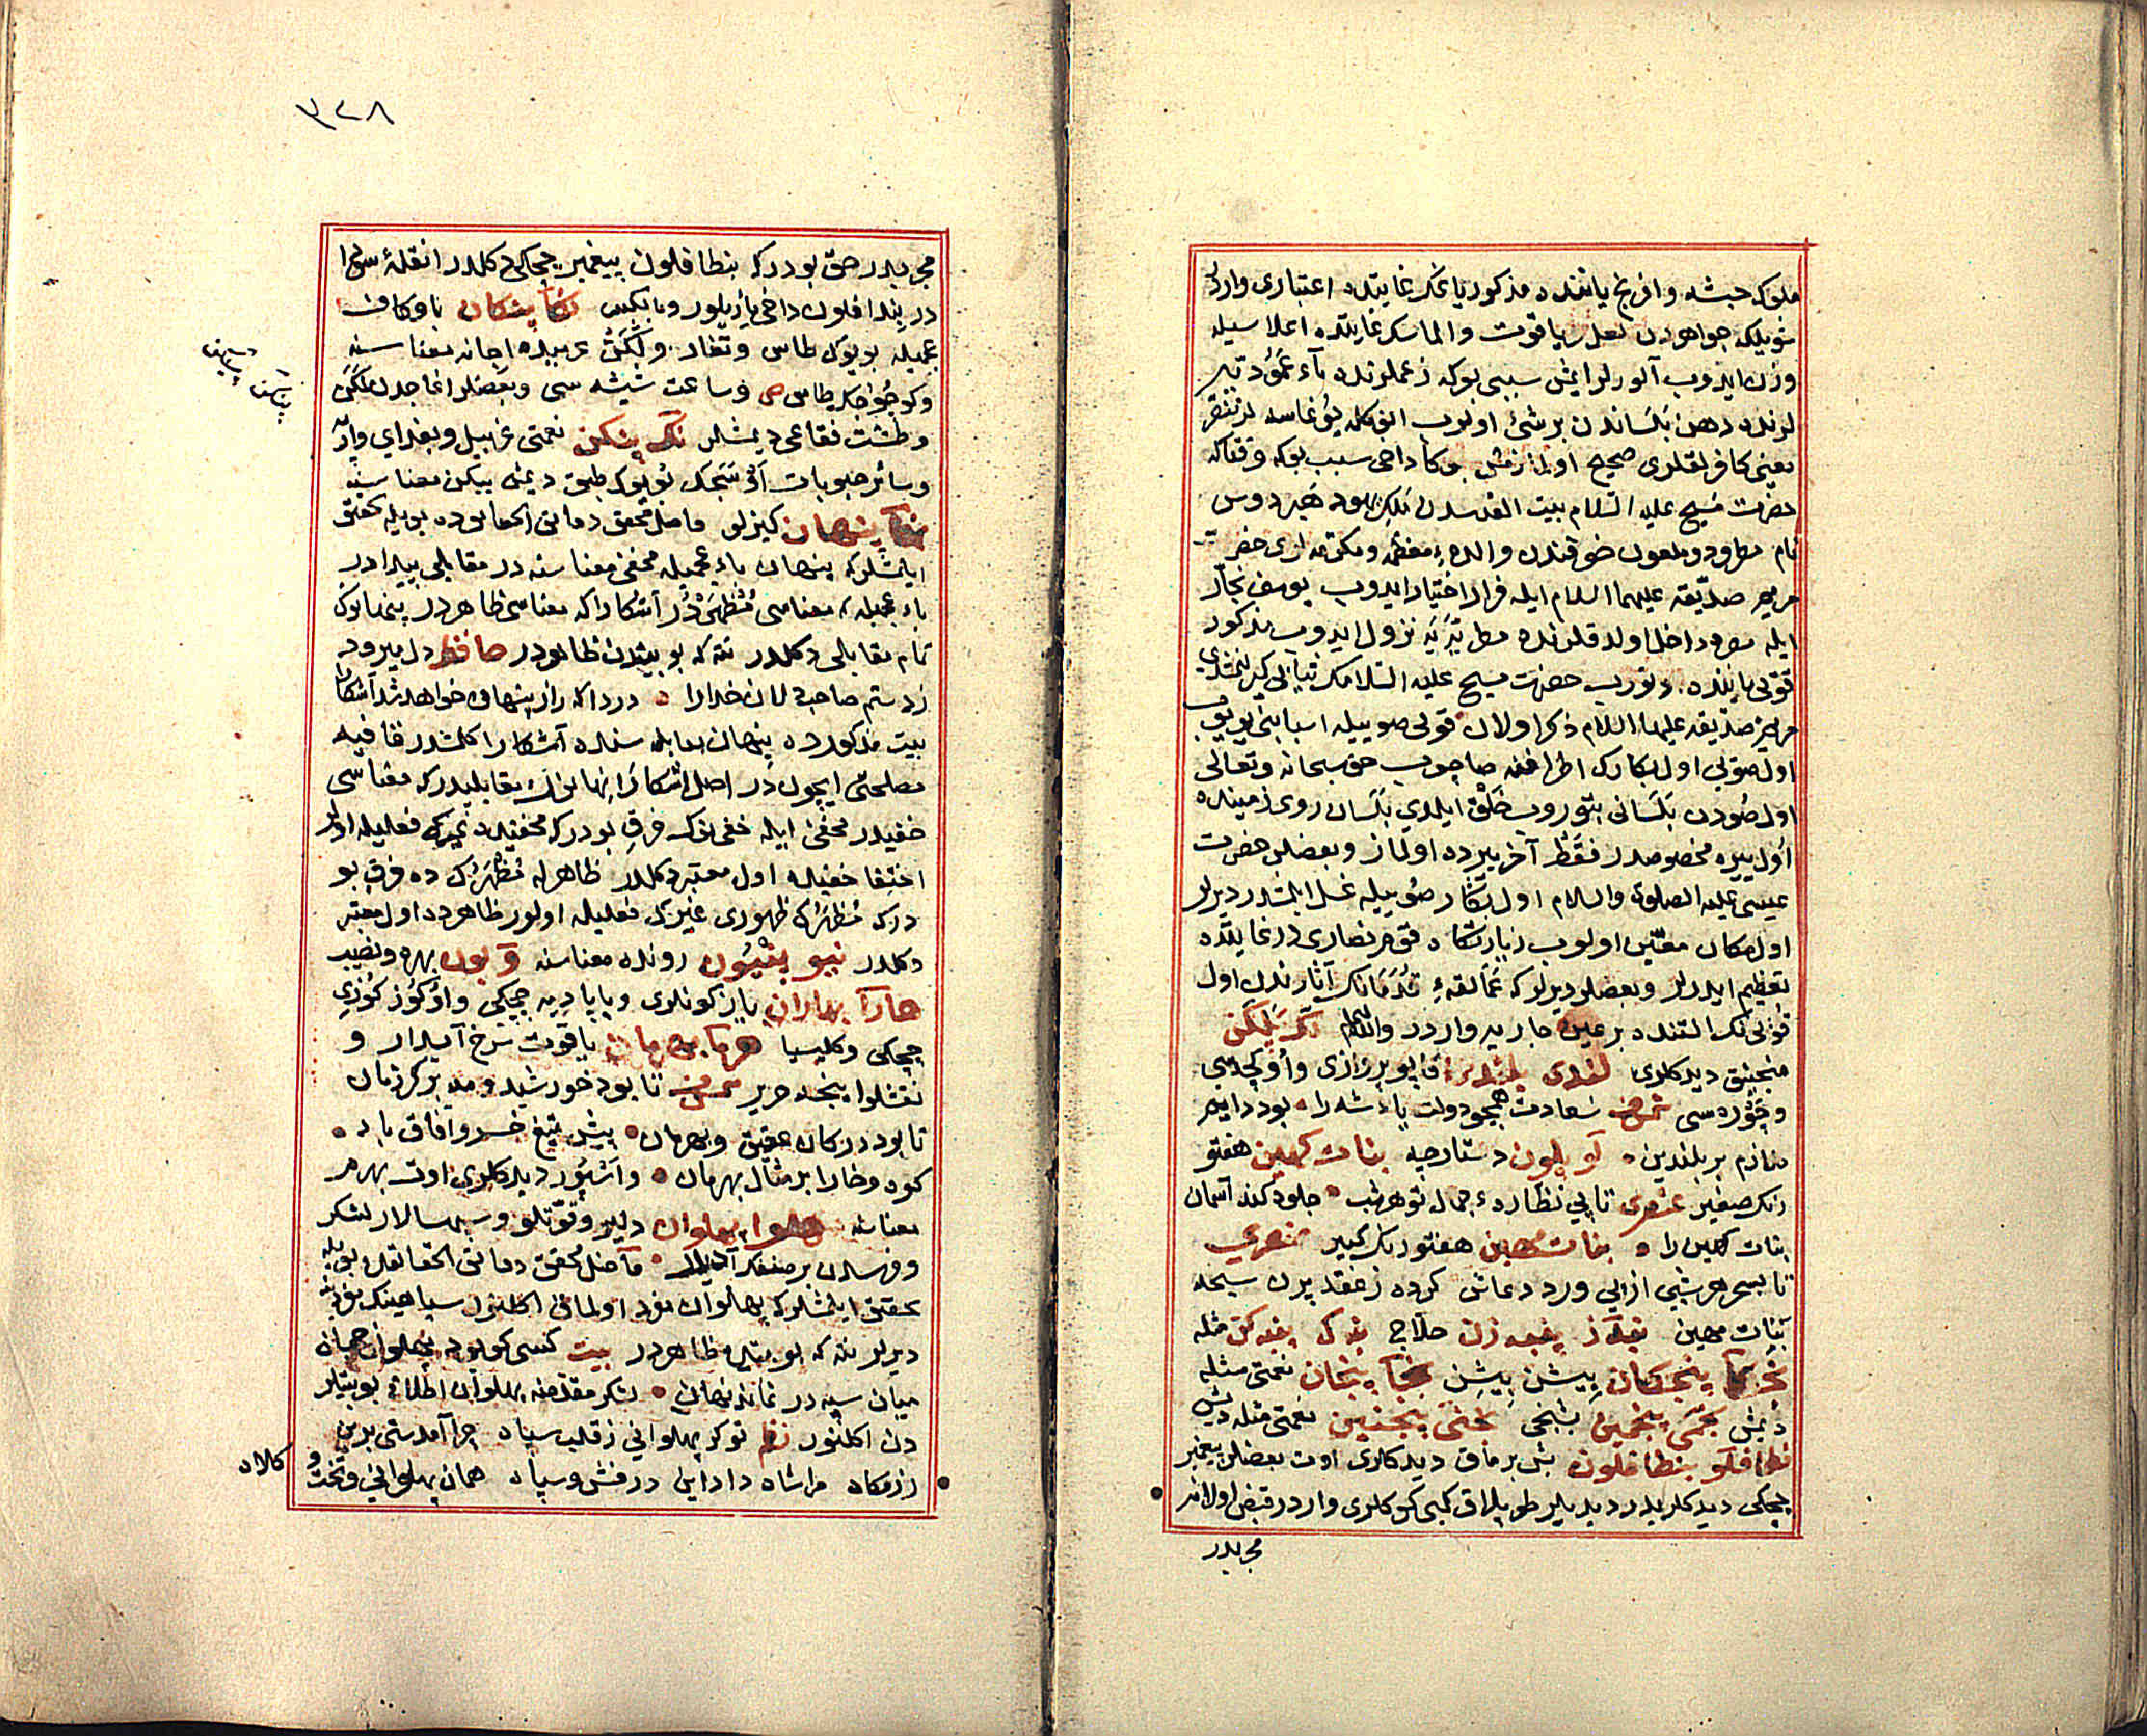 ملوک حبشه و افرنج یاننده مذکور یاغک غایتده اعتباری واردر
شویلکه جواهردن لعل یاقوت و الماسک غایتده اعلا سیله
وزن ایدوب آلورلر ایمش سببی بو که زعملرنده ماء عمودیه
لرنده دهن بلساندن برشئ اولوب انوکله یوغاسه لر تنصر
یعنی کافرلقلری صحیح اولمازمش بوکا داخی سبب بو که وقتاکه
حضرت مسیح علیه السلام بیت المقدسدن ملک یهود هیردوس
نام مطرود و ملعون خوفندن والدهء معظمه و مکرمه لری حضرت
مریم صدیقه علیهما السلام ایله فرار اختیار ایدوب یوسف نجار
ایله مصره داخل اولدقلرنده مطریه یه نزول ایدوب مذکور
قوئی یاننده اوتورب حضرت مسیح علیه السلامک ثیابی کیرلنمشدی
مریم صدیقه علیها السلام ذکر اولان قوئی صوییله اسبابنی یویوب
اول صوئی اول بکارک اطرافنه صاچوب حق سبحانه و تعالی
اول صودن بلسانی بتوروب خلق ایلدی بلسان روی زمینده
اول یره مخصوصدر فقط آخر یرده اولماز و بعضلر حضرت
عیسی علیه الصلوة والسلام اول بکار صوییله غسل ایلمشدر دیرلر
اول مکان معین اولوب زیارتگاه قوم نصاری در غایتده
تعظیم ایدرلر و بعضلر دیرلر که عمالقهء قدمانک آثارندن اول
قوئی نک التنده بر عین جاریه واردر والله اعلم بلکن
منجنیق دیدکلری بلندین قاپو پروازی و اوکچه سی
و چوره سی سعادت همچو دولت پادشه را بود دایم
ملازم بر بلندین بلون دستارجه بنات کهین هفتو
رنک صغیر عنصری تا پی نظارهء جمال تو هر شب جلوه کند آسمان
بنات کهین را بنات مهین هفتورنک کبیر عنصری
تا بسحر هر شبی از پی ورد دعاش کرده ز عقد پرن سبحه
بنات مهین پنبه زن حلاج پنبه کن مثله
پنجکان بیشن بیشن پنجان نعمتی مثله
دیمش پنجمین بشنجی پنجمین نعمتی مثله دیمش
بنطافلون بش برماق دیدکلری اوت بعضلر پیغمبر
چچکی دیدکلریدر دیدیلر طوپلاق کبی کوکلری واردر قبض اولانه
مجربدر
٣٢٨
مجربدر حق بودر که بنطافلون پیغمبر چچکی دکلدر انقلهء سودا
در بندافلون داخی یازیلور و بالعکس پنکان با و کاف
عجمیله بویوک طاس و تغار و لکن عربیده اجانه معناسنه
و کوچوجک طاس و ساعت شیشه سی و بعضلر اغاجدن لکن
و طشت فقاعی دیمشلر پنکن نعمتی غربیل و بغدای و ارپه
و سائر حبوبات آلاجق بویوک طبق دیمش بیکن معناسنه
پنهان کیزلو فاضل محقق دقائق الحقایقده بویله تحقیق
ایلمشلر که پنهان باء عجمیله مخفی معناسنه در مقابلی پیدادر
باء عجمیله که معناسی مظهردر آشکارا که معناسی ظاهردر پنهانک
تمام مقابلی دکلدر نته که بو بیتدن ظاهردر حافظ دل میرود
زدستم صاحبدلان خدارا دردا که راز پنهان خواهد شد آشکارا
بیت مذکورده پنهان مقابله سنده آشکارا کلمشدر قافیه
مصلحتی ایچوندر اصل آشکارا نهانک مقابلیدر که معناسی
خفیدر مخفی ایله خفی نک فرق بودر که مخفیده غیرک فعلیله اولور
اختفا خفیده اول معتبر دکلدر ظاهر له مظهرک ده فرق بو
در که مظهرک ظهوری غیرک فعلیله اولور ظاهرده اول معتبر
دکلدر بنیون رونده معناسنه بون بهره و نصیب
بهاران یاز کونلری و پاپادیه چچکی و اوکوز کوزی
چچکی و کلیسیا بهرمان یاقوت سرخ آبدار و
نقشلو ایپکه حریر تا بود خورشید و مه بر کرزمان
تا بود در کان عقیق و بهرمان پیش تیغ خسرو آفاق باد
کوه و خارا بر مثال بهرمان و آشپور دیدکلری اوت بهرم
معناسنه پهلوان دلیر و قوتلو و سپهسالار لشکر
و فرسدن بر صنفک آدیدر فاضل محقق دقائق الحقایقده بویله
تحقیق ایلمشلر که پهلوان نفرد اولمانی اکلنور سپاهینک مفردینه
دیرلر نته که بو بیتده ظاهردر بیت کسی کو بود پهلوان جهان
میان سپه در نماند نهان لشکر مقدمنه پهلوان اطلاقی بو بیتلر
دن اکلنور نظم توکر پهلوانی ز قلب سپاه چرا آمدستی بدین
رزمگاه مرا شاه داد این درفش و سپاه همان پهلوانی و تخت و
کلاه